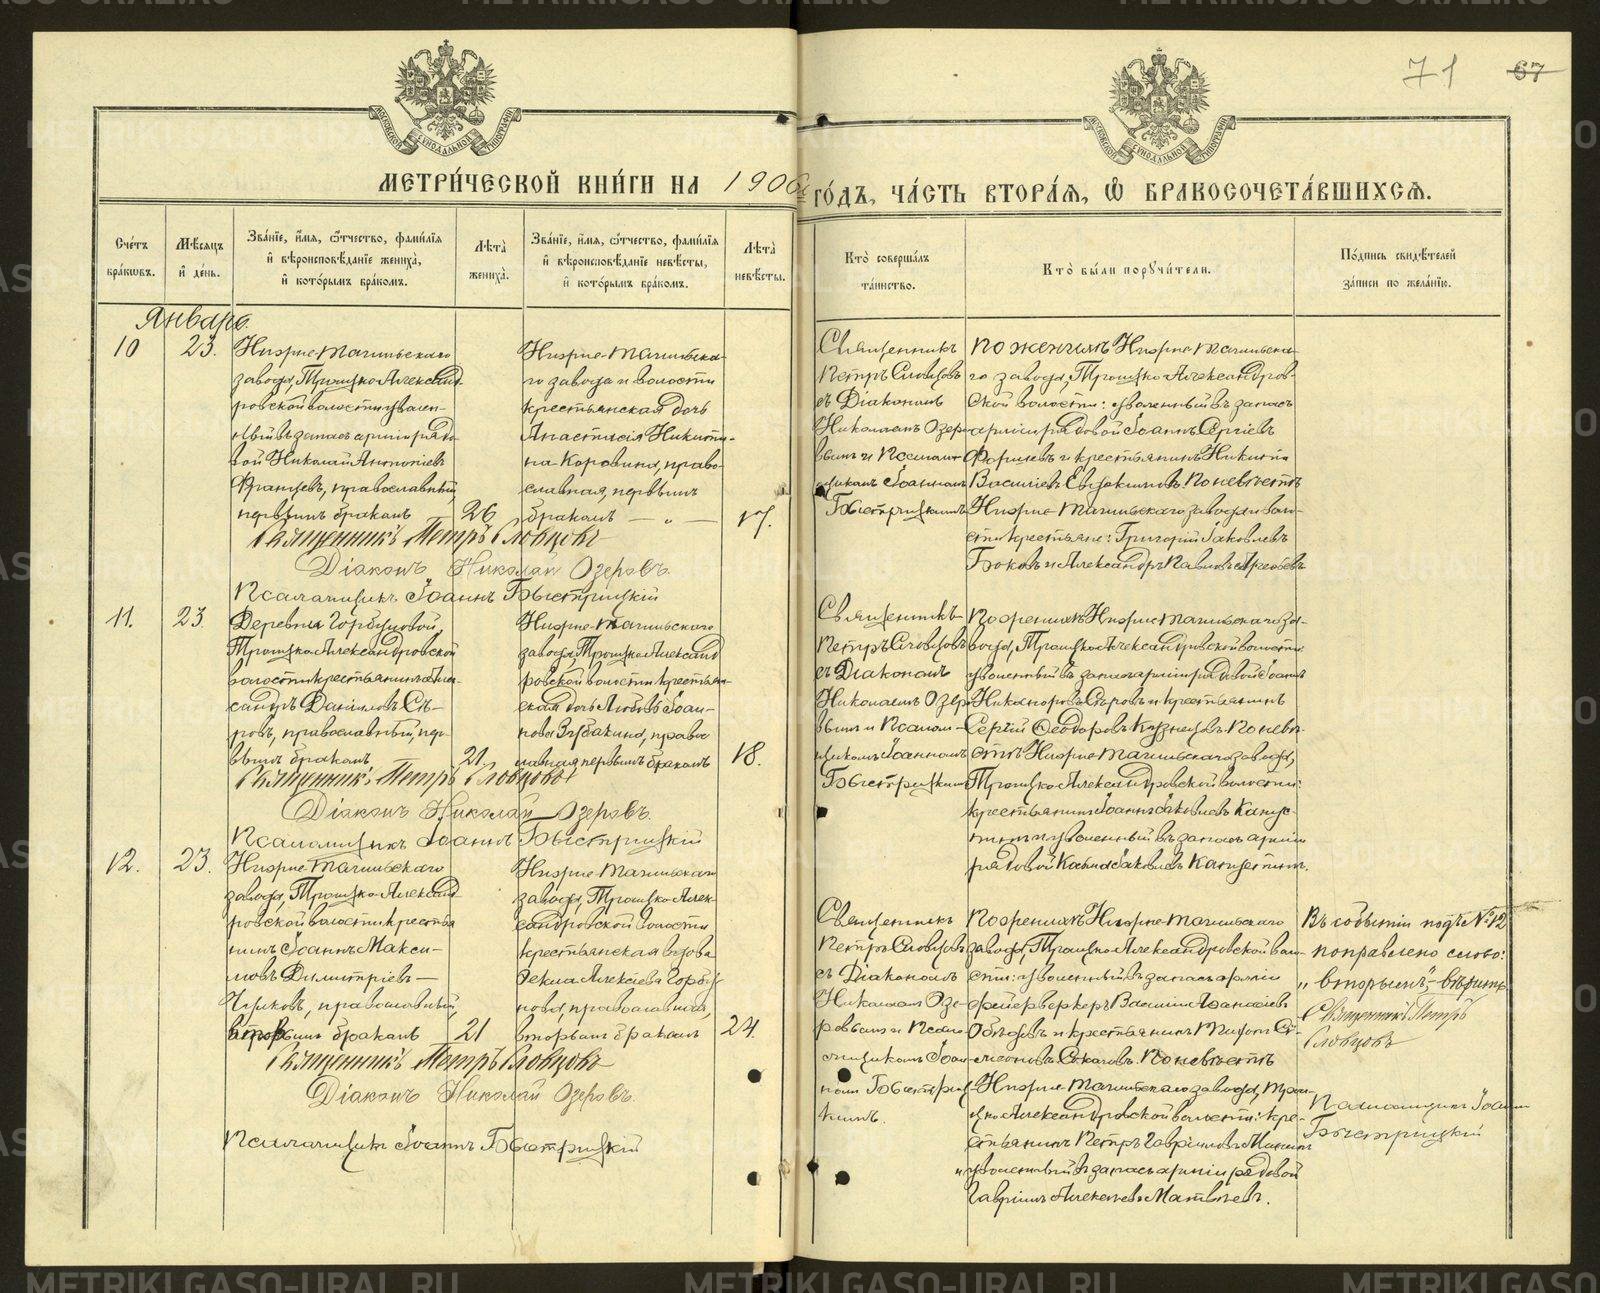 71 67
МЕТРИ́ЧЕСКОЙ КНИ́ГИ НА 1906 ГО́ДЪ, ЧА́СТЬ ВТОРА́Я, Ѡ БРАКОСОЧЕТА́ВШИХСЯ.
Счетъ браковъ.
Мѣсяцъ и день.
Званіе, имя, отчество, фамилія и вѣроисповѣданіе жениха, и которымъ бракомъ.
Лѣта жениха.
Званіе, имя, отчество, фамилія и вѣроисповѣданіе невѣсты, и которымъ бракомъ.
Лѣта невѣсты.
Кто совершалъ таинство.
Кто были поручители.
Подпись свидѣтелей записи по желанію.
Январь
10
23.
Нижне-Тагильскаго
завода, Троицко-Александ-
ровской волости уволен-
ный въ запасъ арміи рядо-
вой Николай Антоніевъ
Францевъ, православный,
первымъ бракомъ
26
Нижне-Тагильска-
го завода и волости
крестьянская дочь
Анастасія Никити-
на Коровина, право-
славная, первымъ
бракомъ
17.
Священникъ
Петръ Словцовъ
съ Діакономъ
Николаемъ Озеро-
вымъ и Псалом-
щикомъ Іоанномъ
Быстрицкимъ
По женихѣ Нижне-Тагильска-
го завода, Троицко-Александров-
ской волости: уволенный въ запасъ
арміи рядовой Іоаннъ Сергіевъ
и крестьянинъ Никита
Василіевъ Евдокимовъ. По невѣстѣ
Нижне-Тагильскаго завода и воло-
сти крестьяне: Григорій Яковлевъ
Боковъ и Александръ Павловъ
Священникъ Петръ Словцовъ
Діаконъ Николай Озеровъ.
Псаломщикъ Іоаннъ Быстрицкій
11.
23.
Деревни Горбуновой,
Троицко-Александровской
волости крестьянинъ Алек-
сандръ Даниловъ Сѣ-
ровъ, православный, пер-
вымъ бракомъ
21.
Нижне-Тагильскаго
завода, Троицко-Александ-
ровской волости крестьян-
ская дочь Любовь Іоан-
нова Зубакина, право-
славная первымъ бракомъ
18.
Священникъ
Петръ Словцовъ
съ Діакономъ
Николаемъ Озеро-
вымъ и Псалом-
щикомъ Іоанномъ
Быстрицкимъ
По женихѣ Нижне-Тагильскаго за-
вода, Троицко-Александровской волости
уволенный въ запасъ арміи рядовой Іоаннъ
Никаноровъ Сѣровъ и крестьянинъ
Сергій Ѳеодоровъ Кузнецовъ. По невѣ-
стѣ Нижне-Тагильскаго завода,
Троицко-Александровской волости:
крестьянинъ Іоаннъ Яковлевъ Капус-
тинъ и уволенный въ запасъ арміи
рядовой Яковлевъ Капустинъ.
Священникъ Петръ Словцовъ
Діаконъ Николай Озеровъ.
Псаломщикъ Іоаннъ Быстрицкій
12.
23.
Нижне-Тагильскаго
завода, Троицко-Александ-
ровской волости крестья-
нинъ Іоаннъ Макси-
мовъ Димитріевъ-
православный,
вторымъ бракомъ
21
Нижне-Тагильскаго
завода, Троицко-Алек-
сандровской волости
крестьянская вдова
Ѳекла Алексіева Горбу-
нова, православная,
вторымъ бракомъ
24.
Священникъ
Петръ Словцовъ
съ Діакономъ
Николаемъ Озе-
ровымъ и Псало-
мщикомъ Іоан-
номъ Быстриц-
кимъ.
По женихѣ Нижне-Тагильскаго
завода, Троицко-Александровской воло-
сти: уволенный въ запасъ арміи
фейерверкеръ Василій Аѳанасіевъ
и крестьянинъ
По невѣстѣ
Нижне-Тагильскаго завода, Трои-
цко-Александровской волости: кре-
стьянинъ Петръ Гавріиловъ
и уволенный въ запасъ арміи рядовой
Гавріилъ Алексѣевъ Матвѣевъ.
Въ событіи подъ №12
поправлено слово:
„вторымъ", - вѣрить
Священникъ Петръ
Словцовъ
Псаломщикъ Іоаннъ
Быстрицкій
Священникъ Петръ Словцовъ
Діаконъ Николай Озеровъ.
Псаломщикъ Іоаннъ Быстрицкій
METRIKI.GASO-URAL.RU